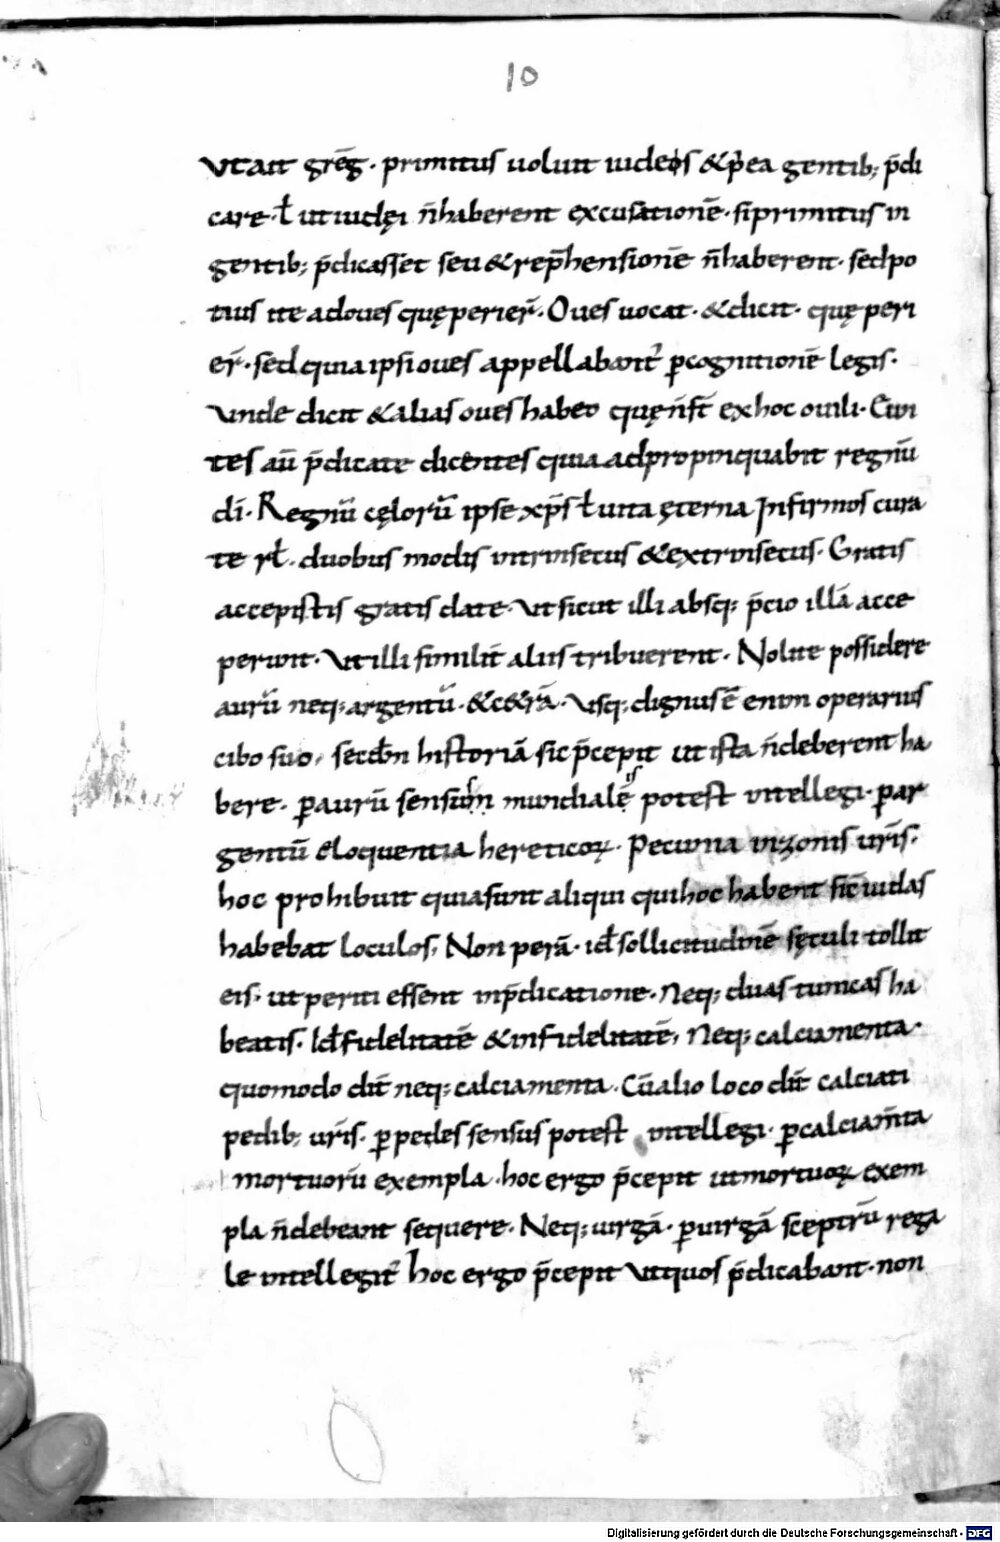 10
ut ait grēg · primitus uoluit iudeos & p̄ea gentib; p̄di
care · ł ut iudęi n̄ haberent excusationē · si primitus in
gentib; p̄dicasset seu & rep̄hensionē n̄ haberent · sed po
tius ite ad oues quę perier̄ · Oues uocat · & dicit · quę peri
er̄ · sed quia ipsi oues appellabant᷒ ꝑ cognitionē legis ·
Unde dicit & alias oues habeo quę n̄ st̄ ex hoc ouili · Eun
tes aū p̄dicate dicentes quia adpropinquabit regnū
dī · Regnū cęlorū ipse xp̄s ł uita ęterna Infirmos cura
te rł · duobus modis intrinsecus & extrinsecus · Gratis
accepistis gratis date · Ut sicut illi absq; p̄cio illā acce
perunt · Ut illi similit̄ aliis tribuerent · Nolite possidere
aurū neq; argentū · & c&rā · Usq; dignus ē enim operarius
cibo suo · secdm̄ historiā sic p̄cepit ut ista n̄ deberent ha
bere · ꝑ aurū sensum mundialē potest intellegi · ꝑ ar
gentū eloquentia hereticoꝝ · Pecunia in zonis ur̄is ·
hoc prohibuit quia sunt aliqui qui hoc habent sic̄ iudas
habebat loculos · Non perā · id ÷ sollicitudinē sęculi tollit
eis · ut periti essent in p̄dicatione · Neq; duas tunicas ha
beatis · Id ÷ fidelitatē & infidelitatē · Neq; calciamenta ·
quomodo dic̄ neq; calciamenta · Cū alio loco dic̄ calciati
pedib; ur̄is · ꝑ pedes sensus potest intellegi · ꝑ calciam̄ta
mortuorū exempla · hoc ergo p̄cepit ut mortuoꝝ exem
pla n̄ debeant sequere · Neq; uirgā · ꝑ uirgā sceptrū rega
le intellegit᷒ hoc ergo p̄cepit ut quos p̄dicabant · non
Digitalisierung gefördert durch die Deutsche Forschungsgemeinschaft - DFG